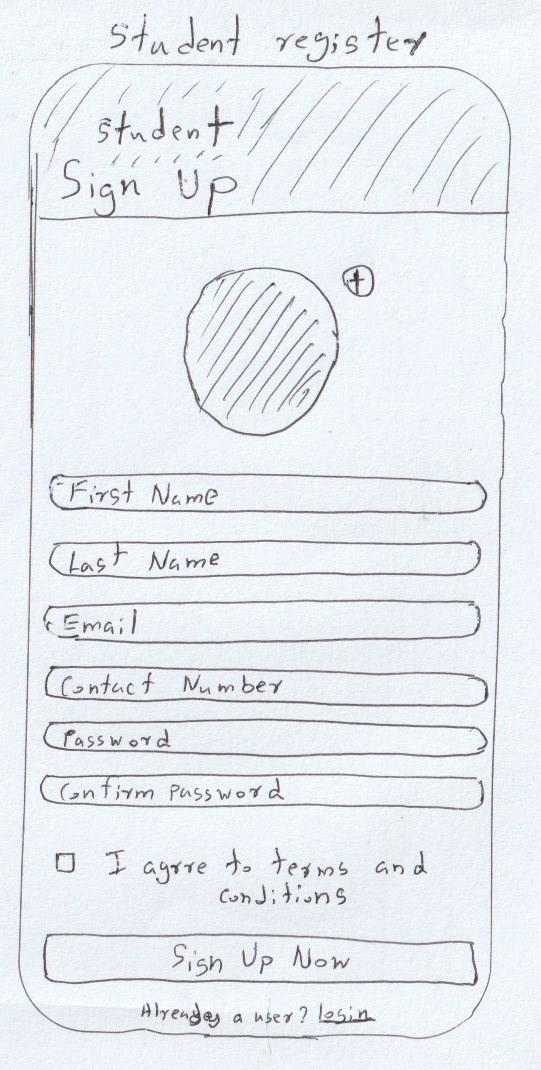 student register
student
Sign Up
+
First Name
Last Name
Email
Contact Number
Password
Confirm Password
I agree to terms and
conditions
Sign Up Now
Already a user? login